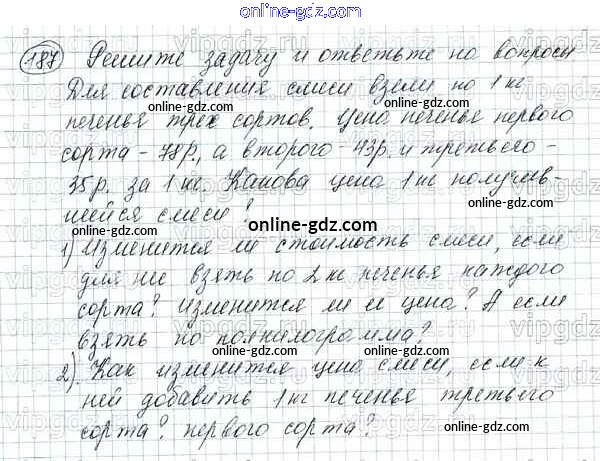 online-gdz.com
187 Решите задачу и ответьте на вопросы
online-gdz.com
Для составления смеси взяли по 1 кг
печенья трех сортов. Цена печенья первого
online-gdz.com
сорта - 78 р., а второго - 43 р. и третьего -
35 р. за 1 кг. Какова цена 1 кг получив-
шейся смеси?
online-gdz.com
1) Изменится ли стоимость смеси, если
для нее взять по 2 кг печенья каждого
online-gdz.com
сорта? Изменится ли ее цена? А если
взять по полкилограмма?
online-gdz.com
2) Как изменится цена смеси, если к
ней добавить 1 кг печенья третьего
online-gdz.com
сорта? первого сорта?
online-gdz.com